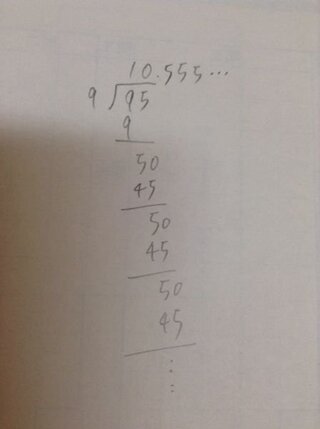 10.555...
9 95
9
50
45
50
45
50
45
⋮